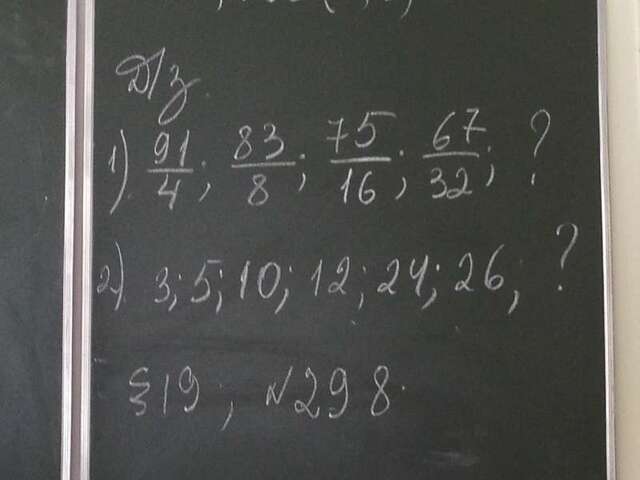 Д/з.
1) 91/4; 83/8; 75/16; 67/32; ?
2) 3; 5; 10; 12; 24; 26; ?
§19; №298.